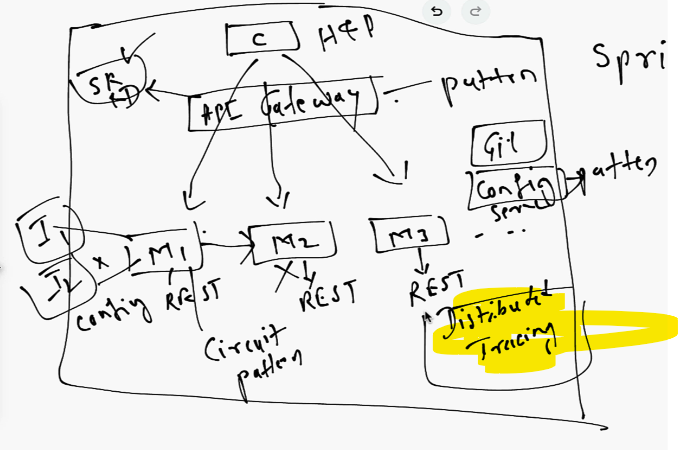 C
H&P
Spri
SR
&D
API Gateway
pattern
Git
Config
server
patten
I1
I2
M1
M2
M3
config
REST
REST
REST
Circuit
pattern
Distributed
Tracing